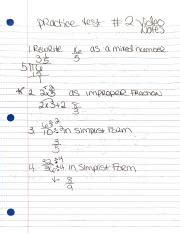 practice test #2 Video
Notes
1. Rewrite 16/5 as a mixed number
3 1/5
5)16
2. 2 3/5 as improper fraction
2x5+3
3. 6÷2/10÷2 in simplist Form
3/5
4. 32÷4/36÷4 in simplist Form
8/9